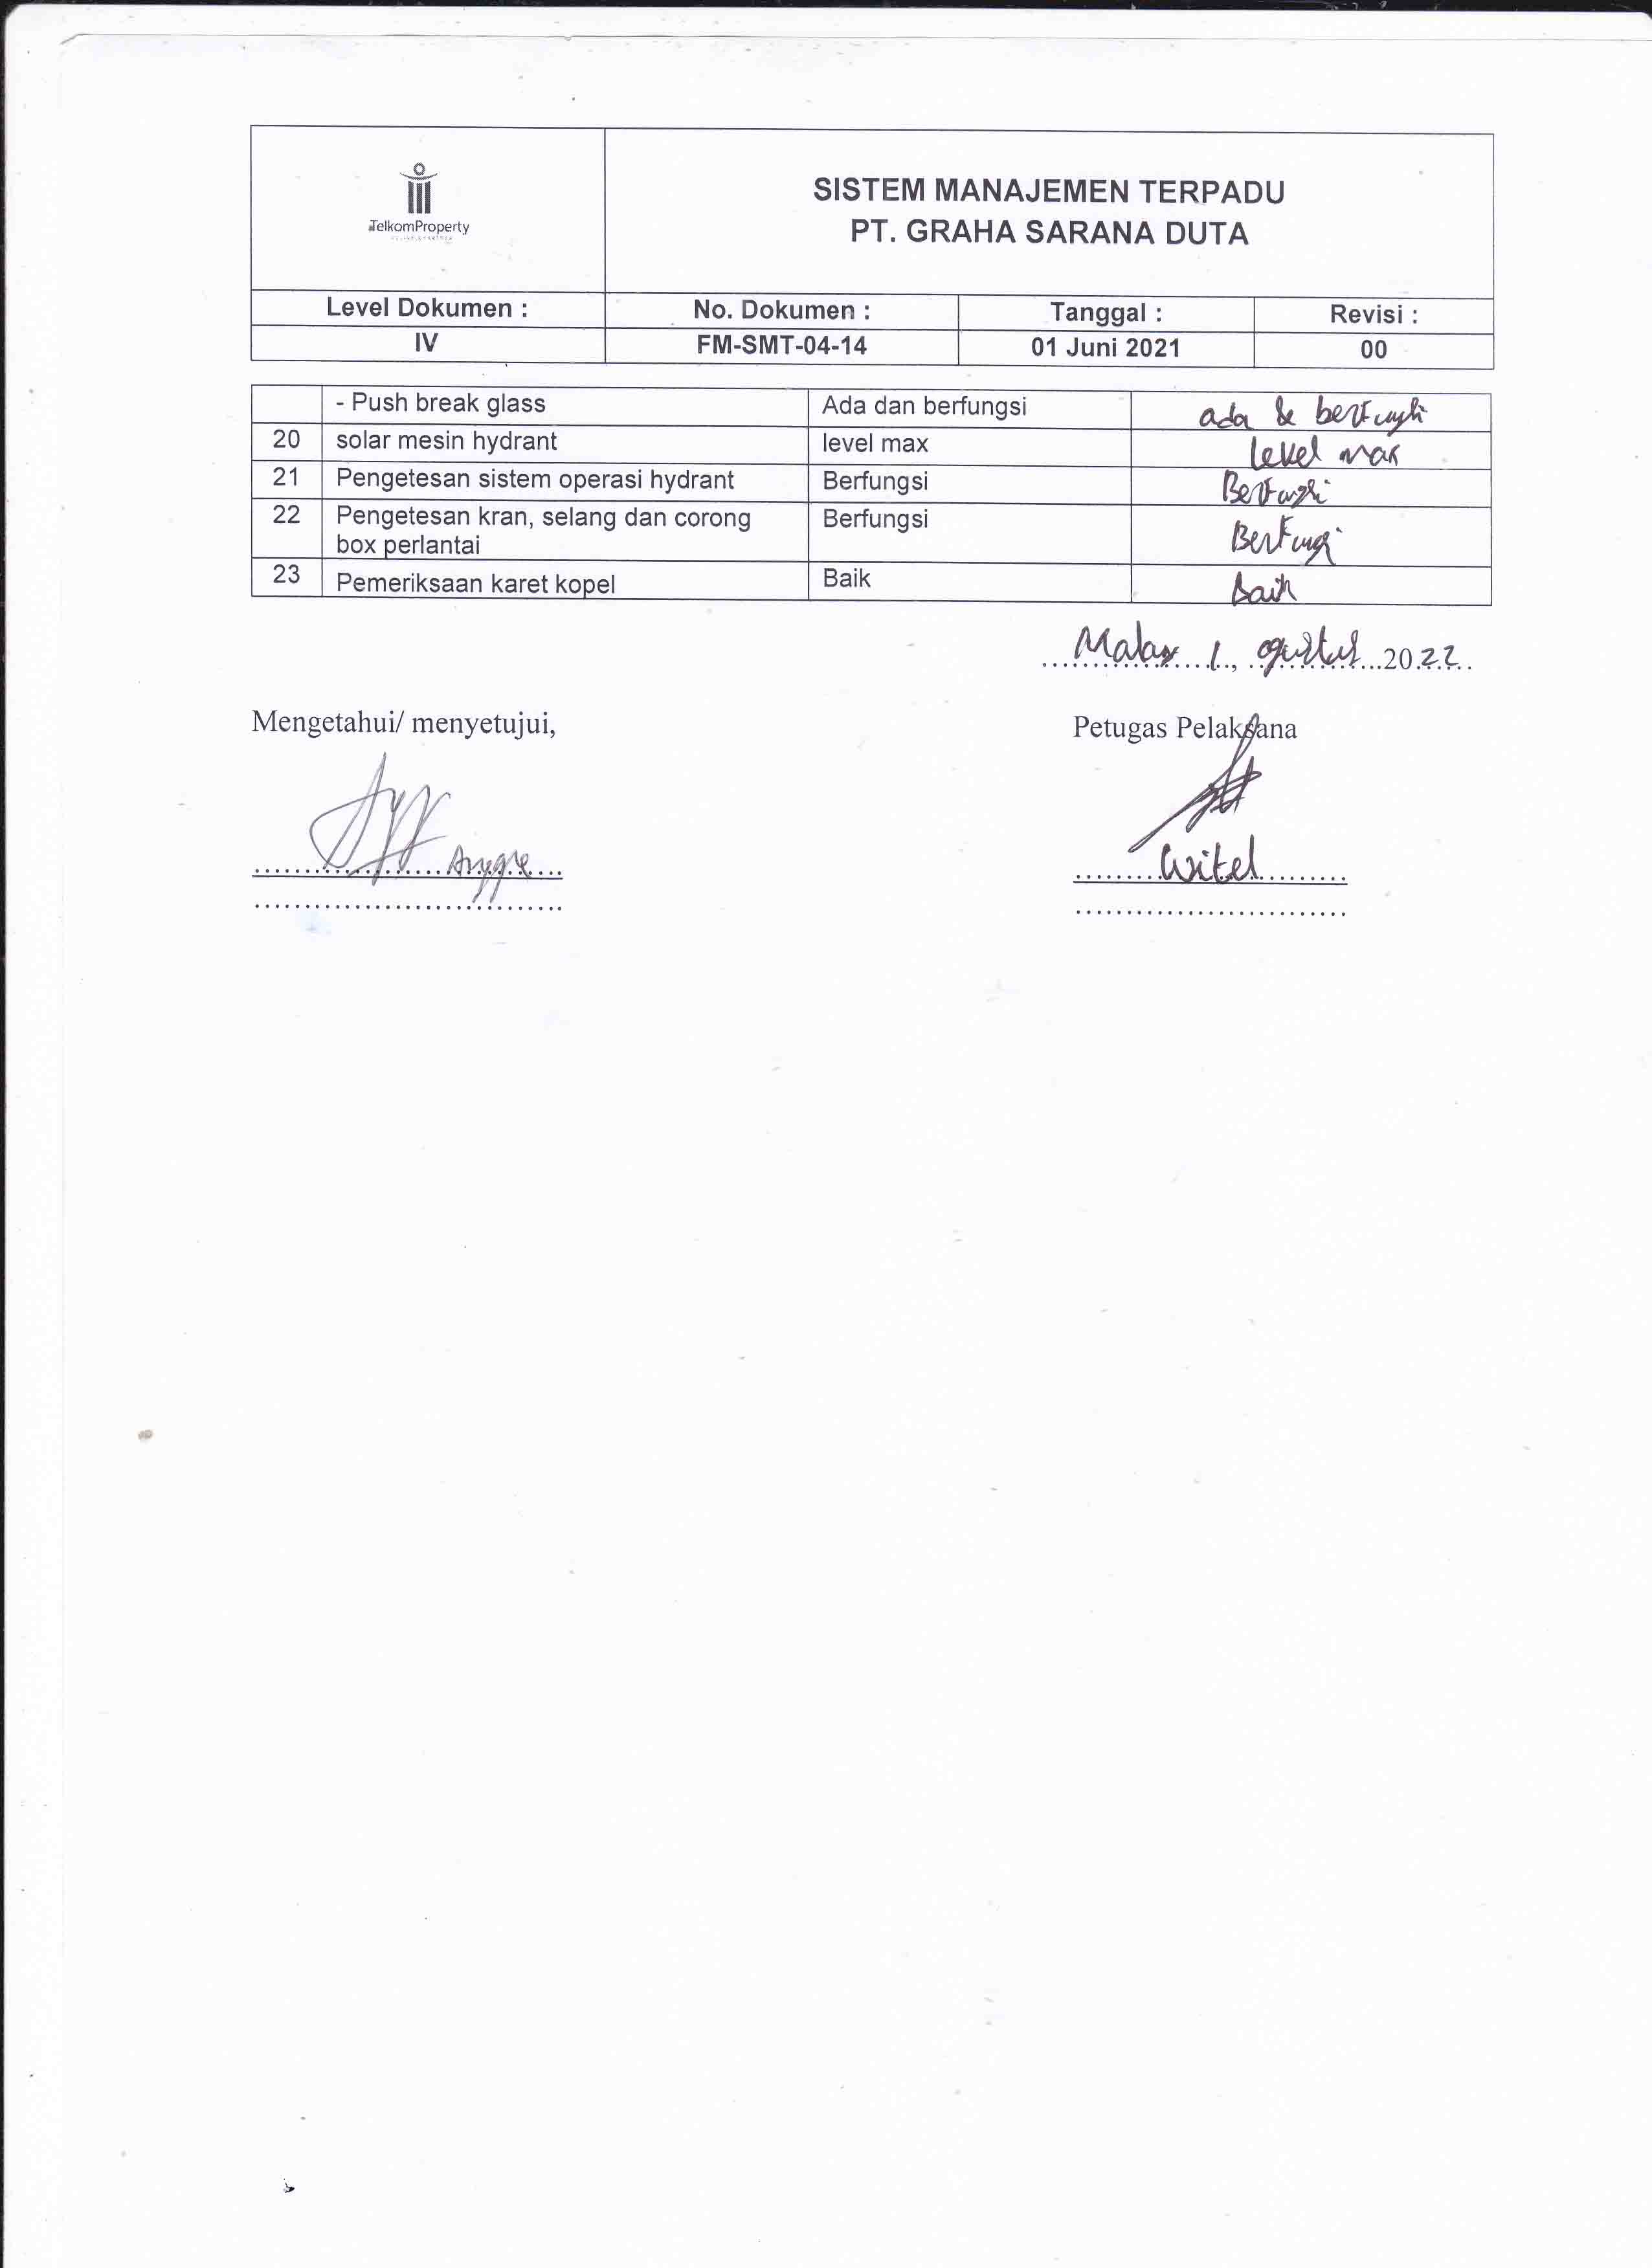 TelkomProperty
SISTEM MANAJEMEN TERPADU
PT. GRAHA SARANA DUTA
Level Dokumen : No. Dokumen : Tanggal : Revisi :
IV FM-SMT-04-14 01 Juni 2021 00
- Push break glass Ada dan berfungsi ada & berfungsi
20 solar mesin hydrant level max level max
21 Pengetesan sistem operasi hydrant Berfungsi Berfungsi
22 Pengetesan kran, selang dan corong Berfungsi Berfungsi
box perlantai
23 Pemeriksaan karet kopel Baik Baik
1, agustus 2022
Mengetahui/ menyetujui, Petugas Pelaksana
Witel